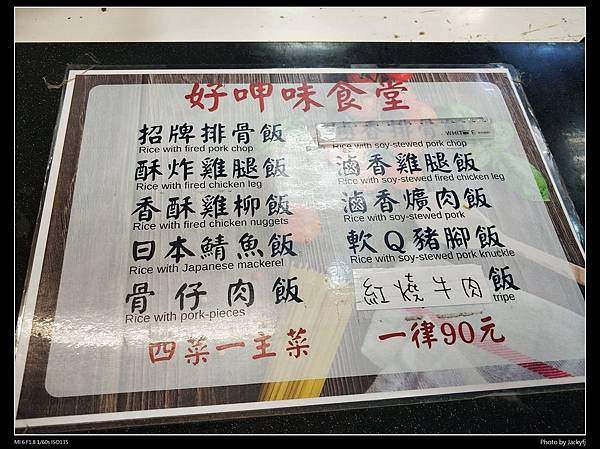 好呷味食堂
招牌排骨飯
Rice with fired pork chop
酥炸雞腿飯
Rice with fired chicken leg
香酥雞柳飯
Rice with fired chicken nuggets
日本鯖魚飯
Rice with Japanese mackerel
骨仔肉飯
Rice with pork-pieces
四菜一主菜
WHITE
Rice with soy-stewed pork chop
滷香雞腿飯
Rice with soy-stewed fired chicken leg
滷香爌肉飯
Rice with soy-stewed pork
軟Q豬腳飯
Rice with soy-stewed pork knuckle
紅燒牛肉飯
tripe
一律90元
MI 6 F1.8 1/60s ISO135
Photo by Jackyfj